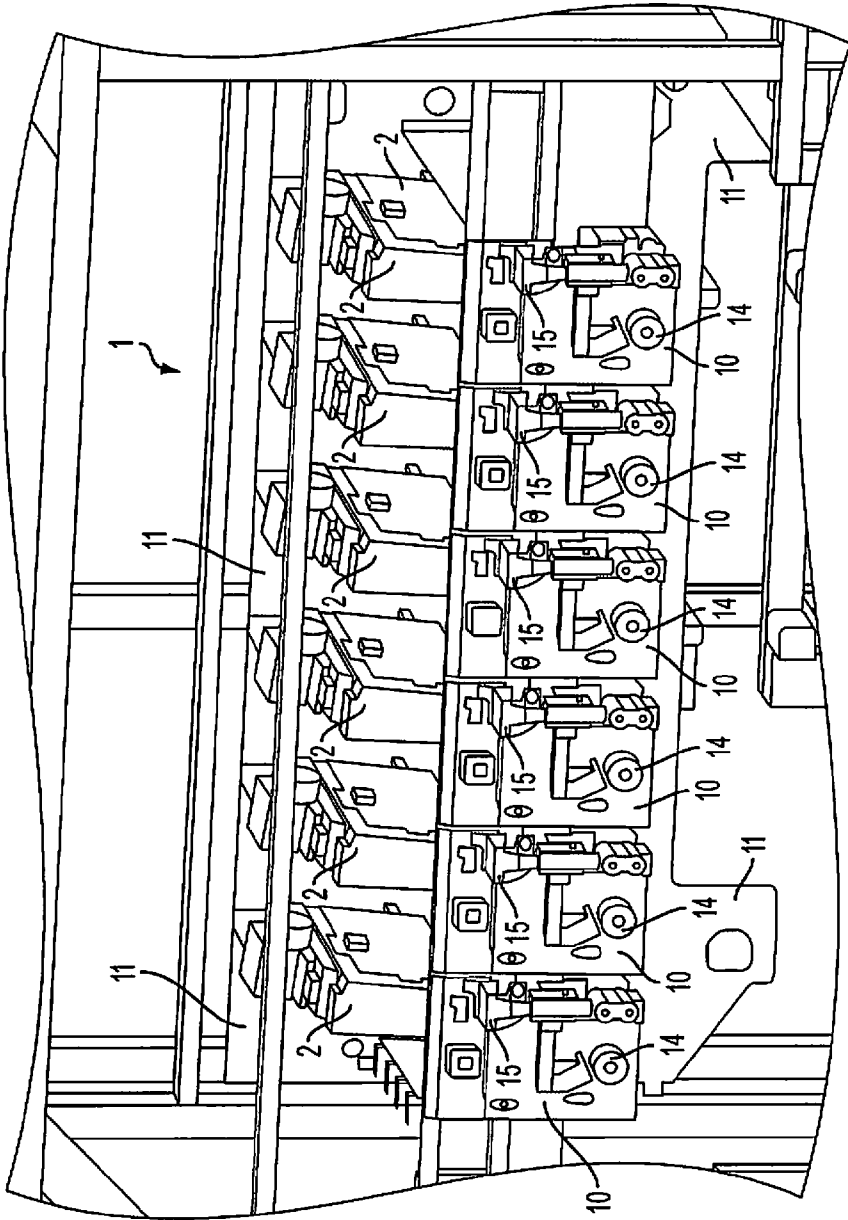 11
11
1
2
2
2
2
2
2
2
15
15
15
15
15
15
14
14
14
14
14
14
10
10
10
10
10
10
11
11